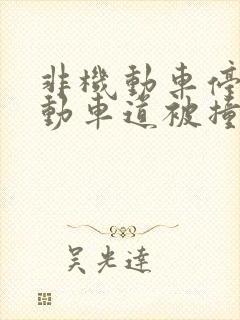 非機動車停
動車道被撞
吳光達